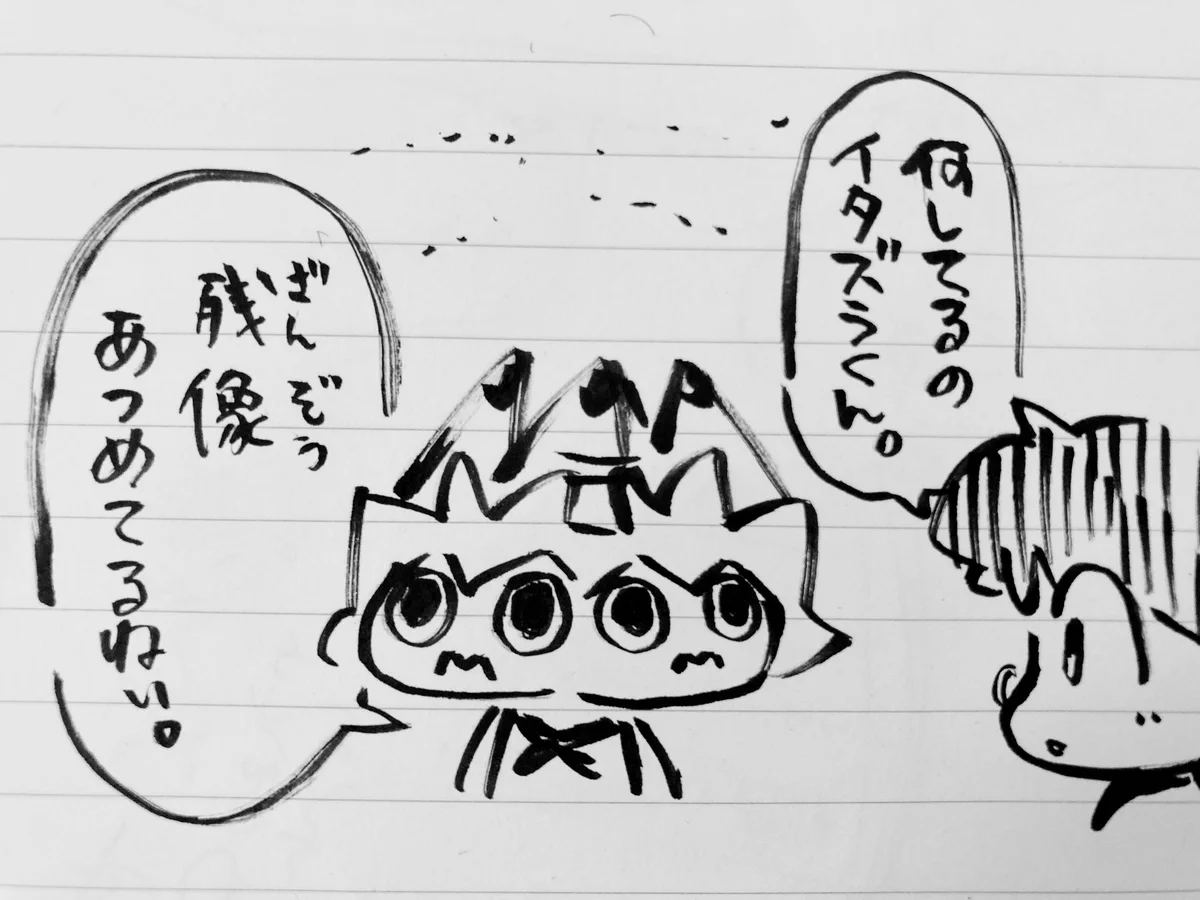 何してるの
イタズラくん。
ざんぞう
残像
あつめてるねい。